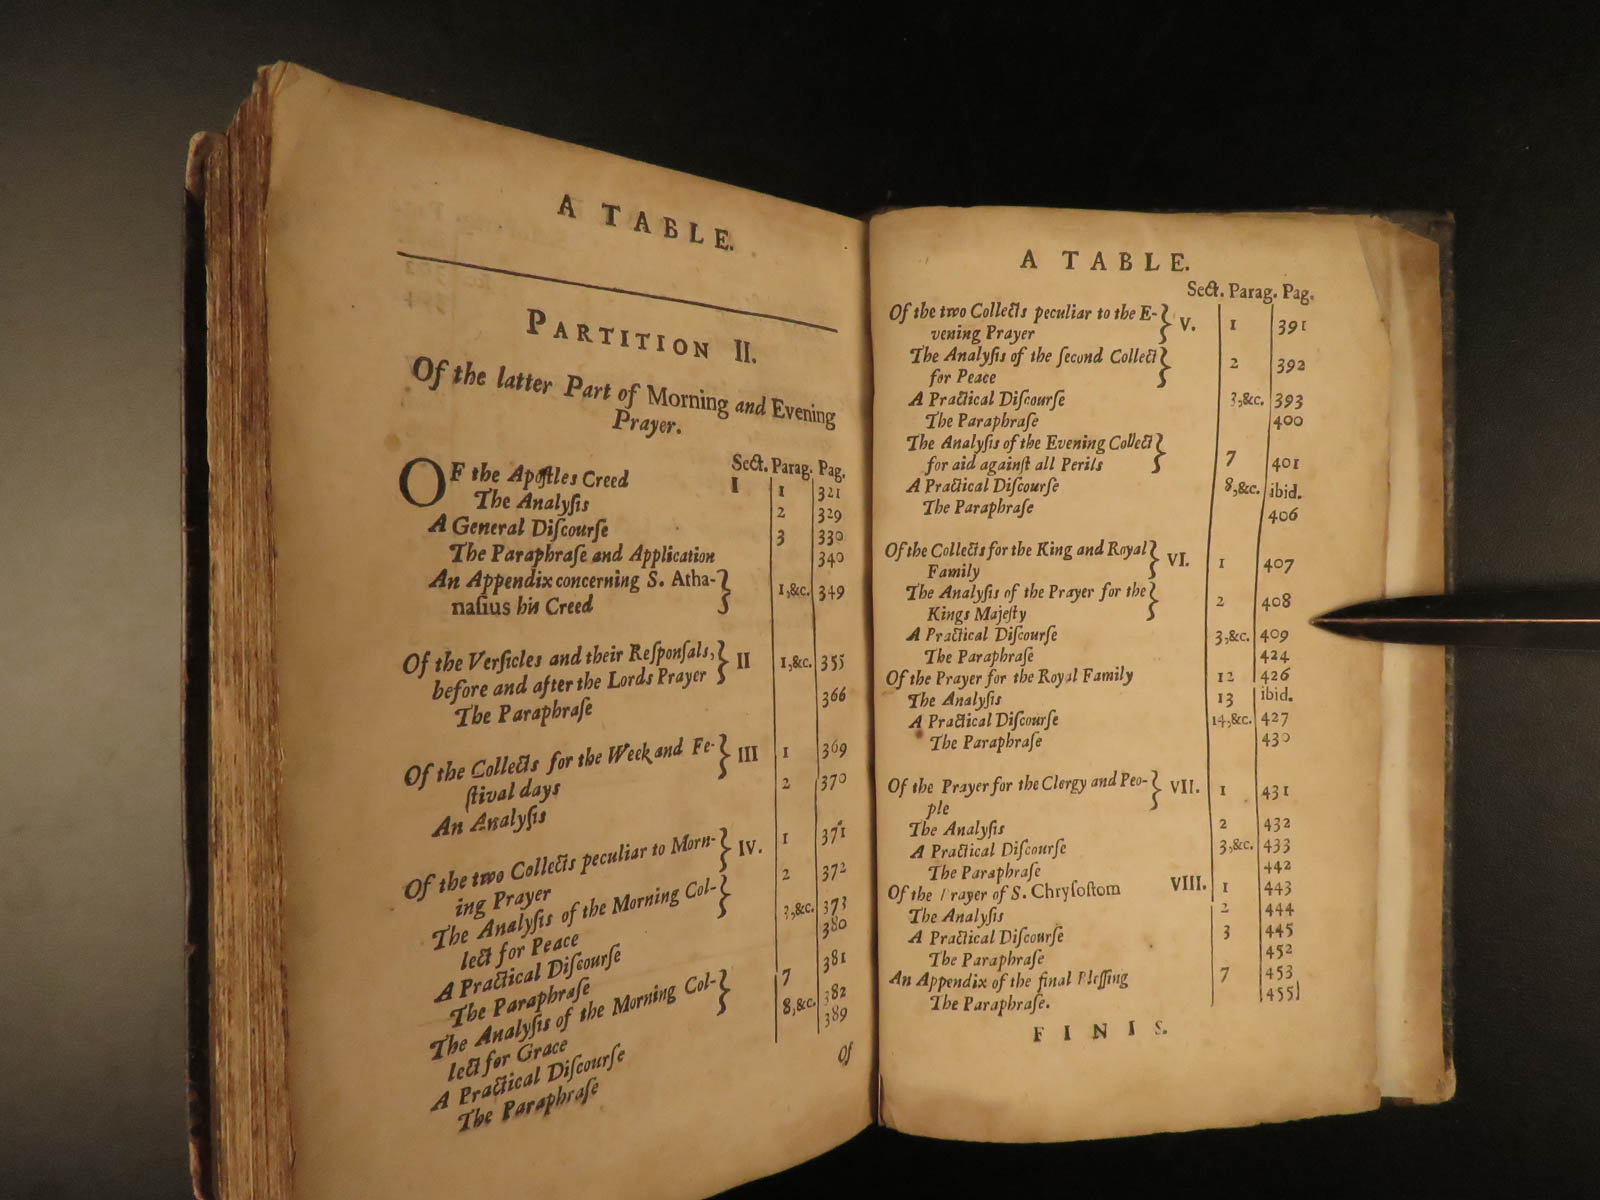 A TABLE.
PARTITION II.
Of the latter Part of Morning and Evening
Prayer.
Sect. Parag. Pag.
OF the Apoſtles Creed I 1 321
The Analyſis 2 329
A General Diſcourſe 3 330
The Paraphraſe and Application 340
An Appendix concerning S. Atha-
naſius his Creed } 1,&c. 349
Of the Verſicles and their Reſponſals,
before and after the Lords Prayer } II 1,&c. 355
The Paraphraſe 366
Of the Collects for the Week and Fe-
ſtival days } III 1 369
An Analyſis 2 370
Of the two Collects peculiar to Morn-
ing Prayer } IV. 1 371
The Analyſis of the Morning Col-
lect for Peace } 2 372
A Practical Diſcourſe 3,&c. 373
The Paraphraſe 380
The Analyſis of the Morning Col-
lect for Grace } 7 381
A Practical Diſcourſe 8,&c. 382
The Paraphraſe 389
Of
A TABLE.
Sect. Parag. Pag.
Of the two Collects peculiar to the E-
vening Prayer } V. 1 391
The Analyſis of the ſecond Collect
for Peace } 2 392
A Practical Diſcourſe 3,&c. 393
The Paraphraſe 400
The Analyſis of the Evening Collect
for aid againſt all Perils } 7 401
A Practical Diſcourſe 8,&c. ibid.
The Paraphraſe 406
Of the Collects for the King and Royal
Family } VI. 1 407
The Analyſis of the Prayer for the
Kings Majeſty } 2 408
A Practical Diſcourſe 3,&c. 409
The Paraphraſe 424
Of the Prayer for the Royal Family 12 426
The Analyſis 13 ibid.
A Practical Diſcourſe 14,&c. 427
The Paraphraſe 430
Of the Prayer for the Clergy and Peo-
ple } VII. 1 431
The Analyſis 2 432
A Practical Diſcourſe 3,&c. 433
The Paraphraſe 442
Of the Prayer of S. Chryſoſtom VIII. 1 443
The Analyſis 2 444
A Practical Diſcourſe 3 445
The Paraphraſe 452
An Appendix of the final Bleſſing 7 453
The Paraphraſe. 455
FINIS.